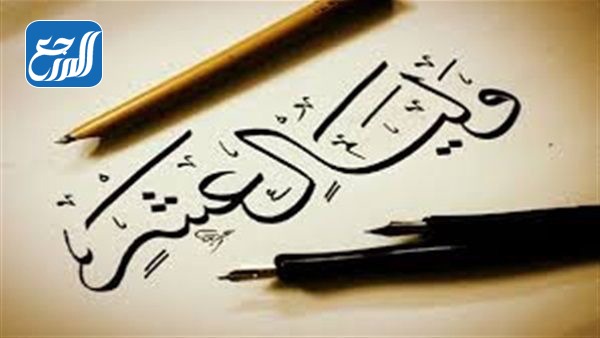 المرجع
وَلَيَالٍ عَشْرٍ